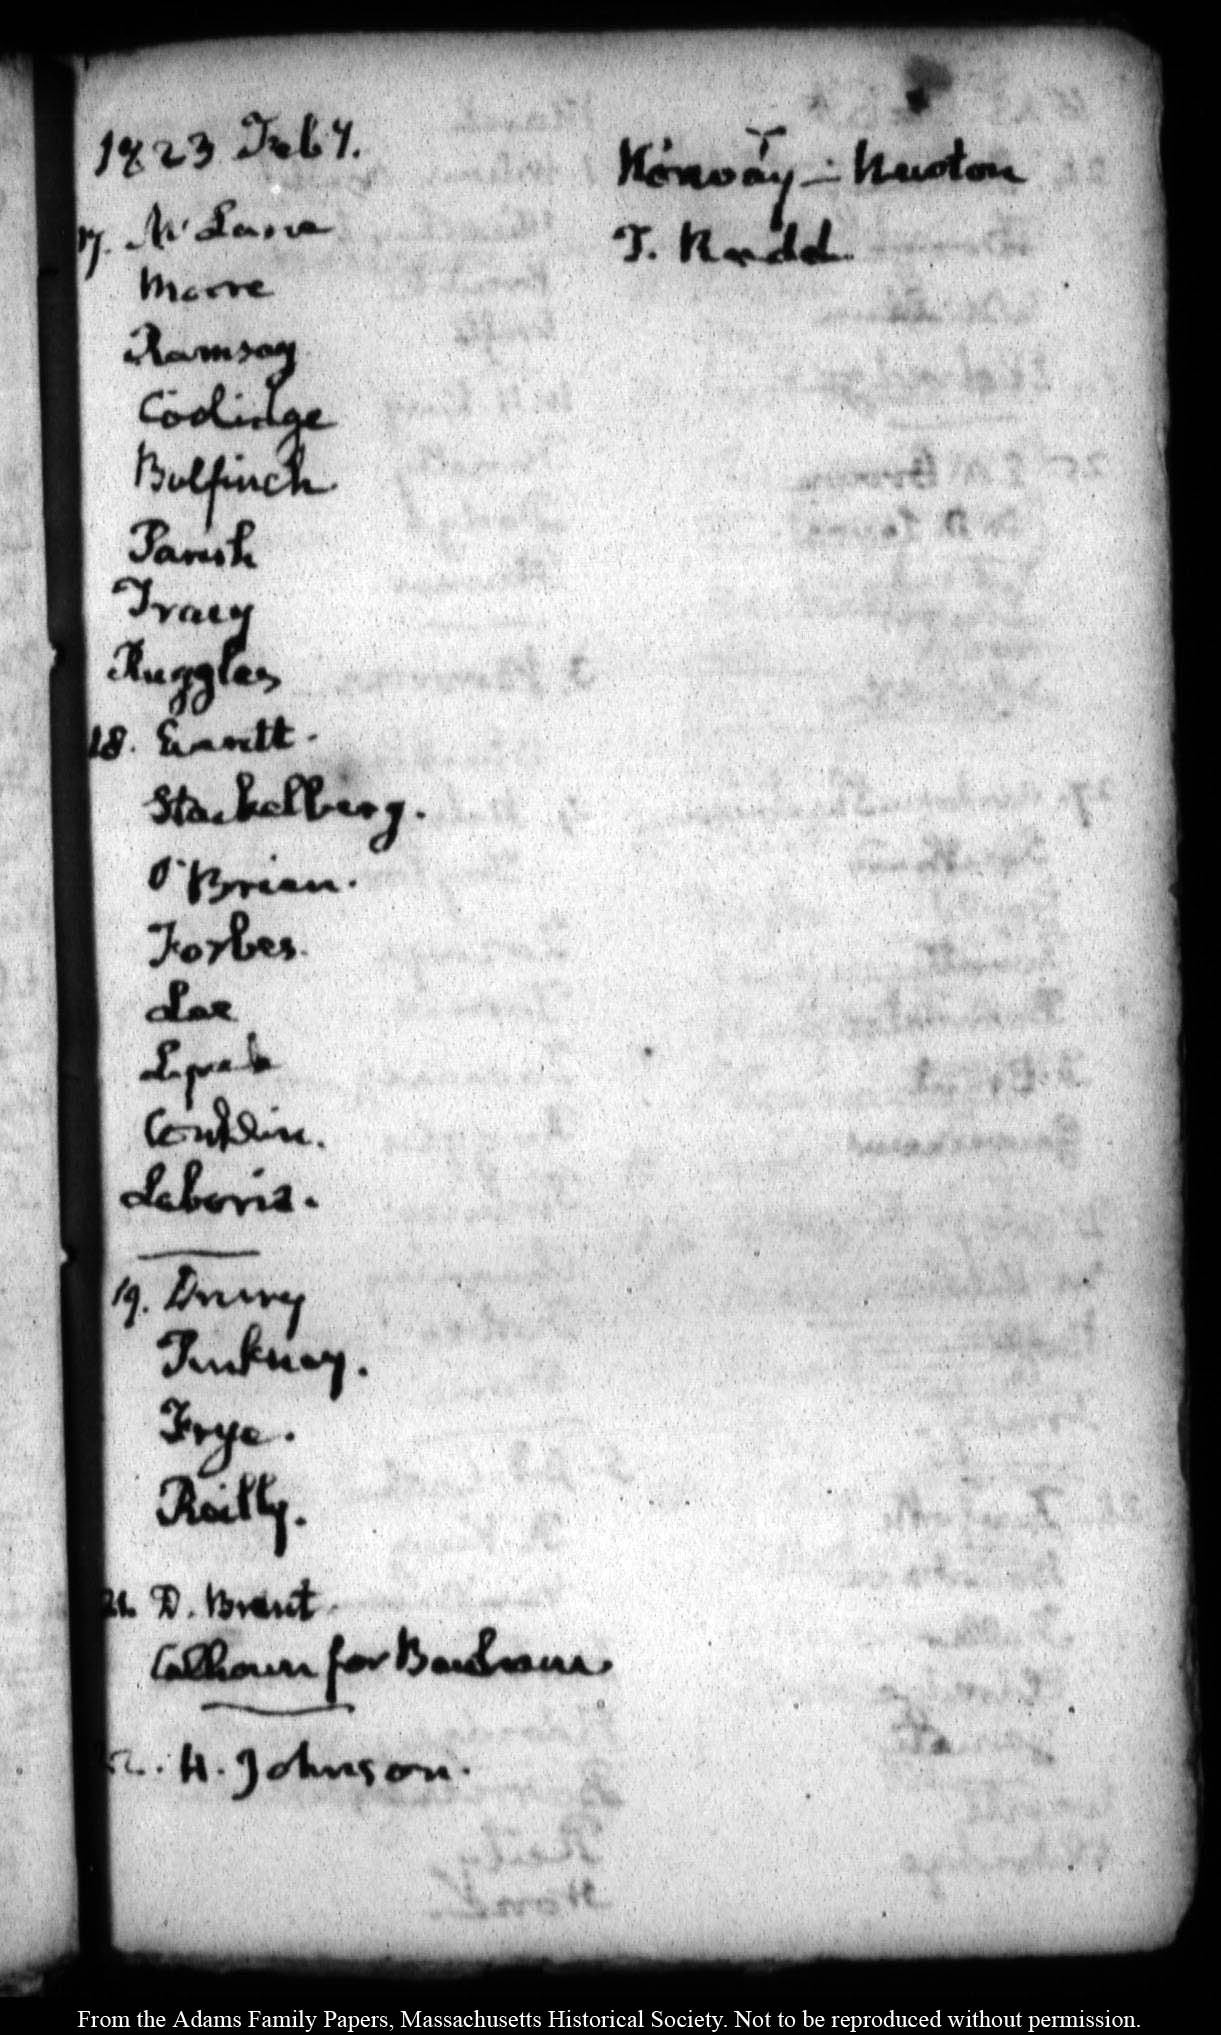 1823 Feby.
17. McLane
Moore
Ramsay
Codidge
Bulfinch.
Parish
Tracy
Ruggles
18. Everett.
Stackelberg.
O'Brien.
Forbes.
Lee
Conklin.
Laborie.
19. Drury
Pinkney.
Frye.
Reilly.
21. D. Brent.
Calhoun for
22. H. Johnson.
Norway - Newton
T. Rudd.
From the Adams Family Papers, Massachusetts Historical Society. Not to be reproduced without permission.